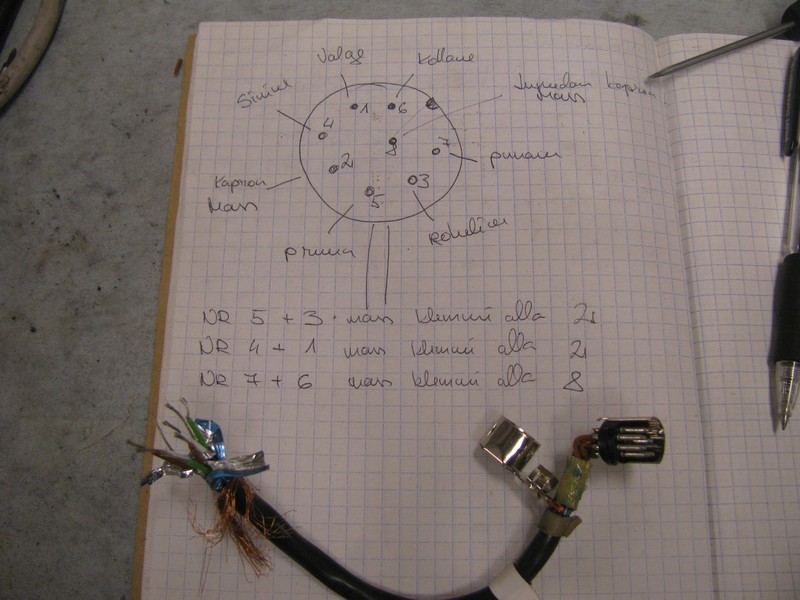 Valge
Kollane
Sinine
1
6
4
8
7
2
Punane
3
Mass
5
Roheline
Pruun
NR 5 + 3 mass klemmi alla 2
NR 4 + 1 mass klemmi alla 2
NR 7 + 6 mass klemmi alla 8